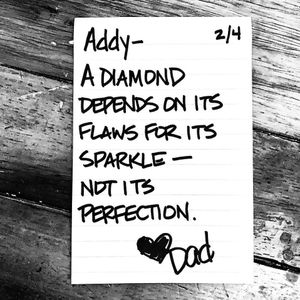 Addy- 2/4
A DIAMOND
DEPENDS ON ITS
FLAWS FOR ITS
SPARKLE —
NOT ITS
PERFECTION.
Dad